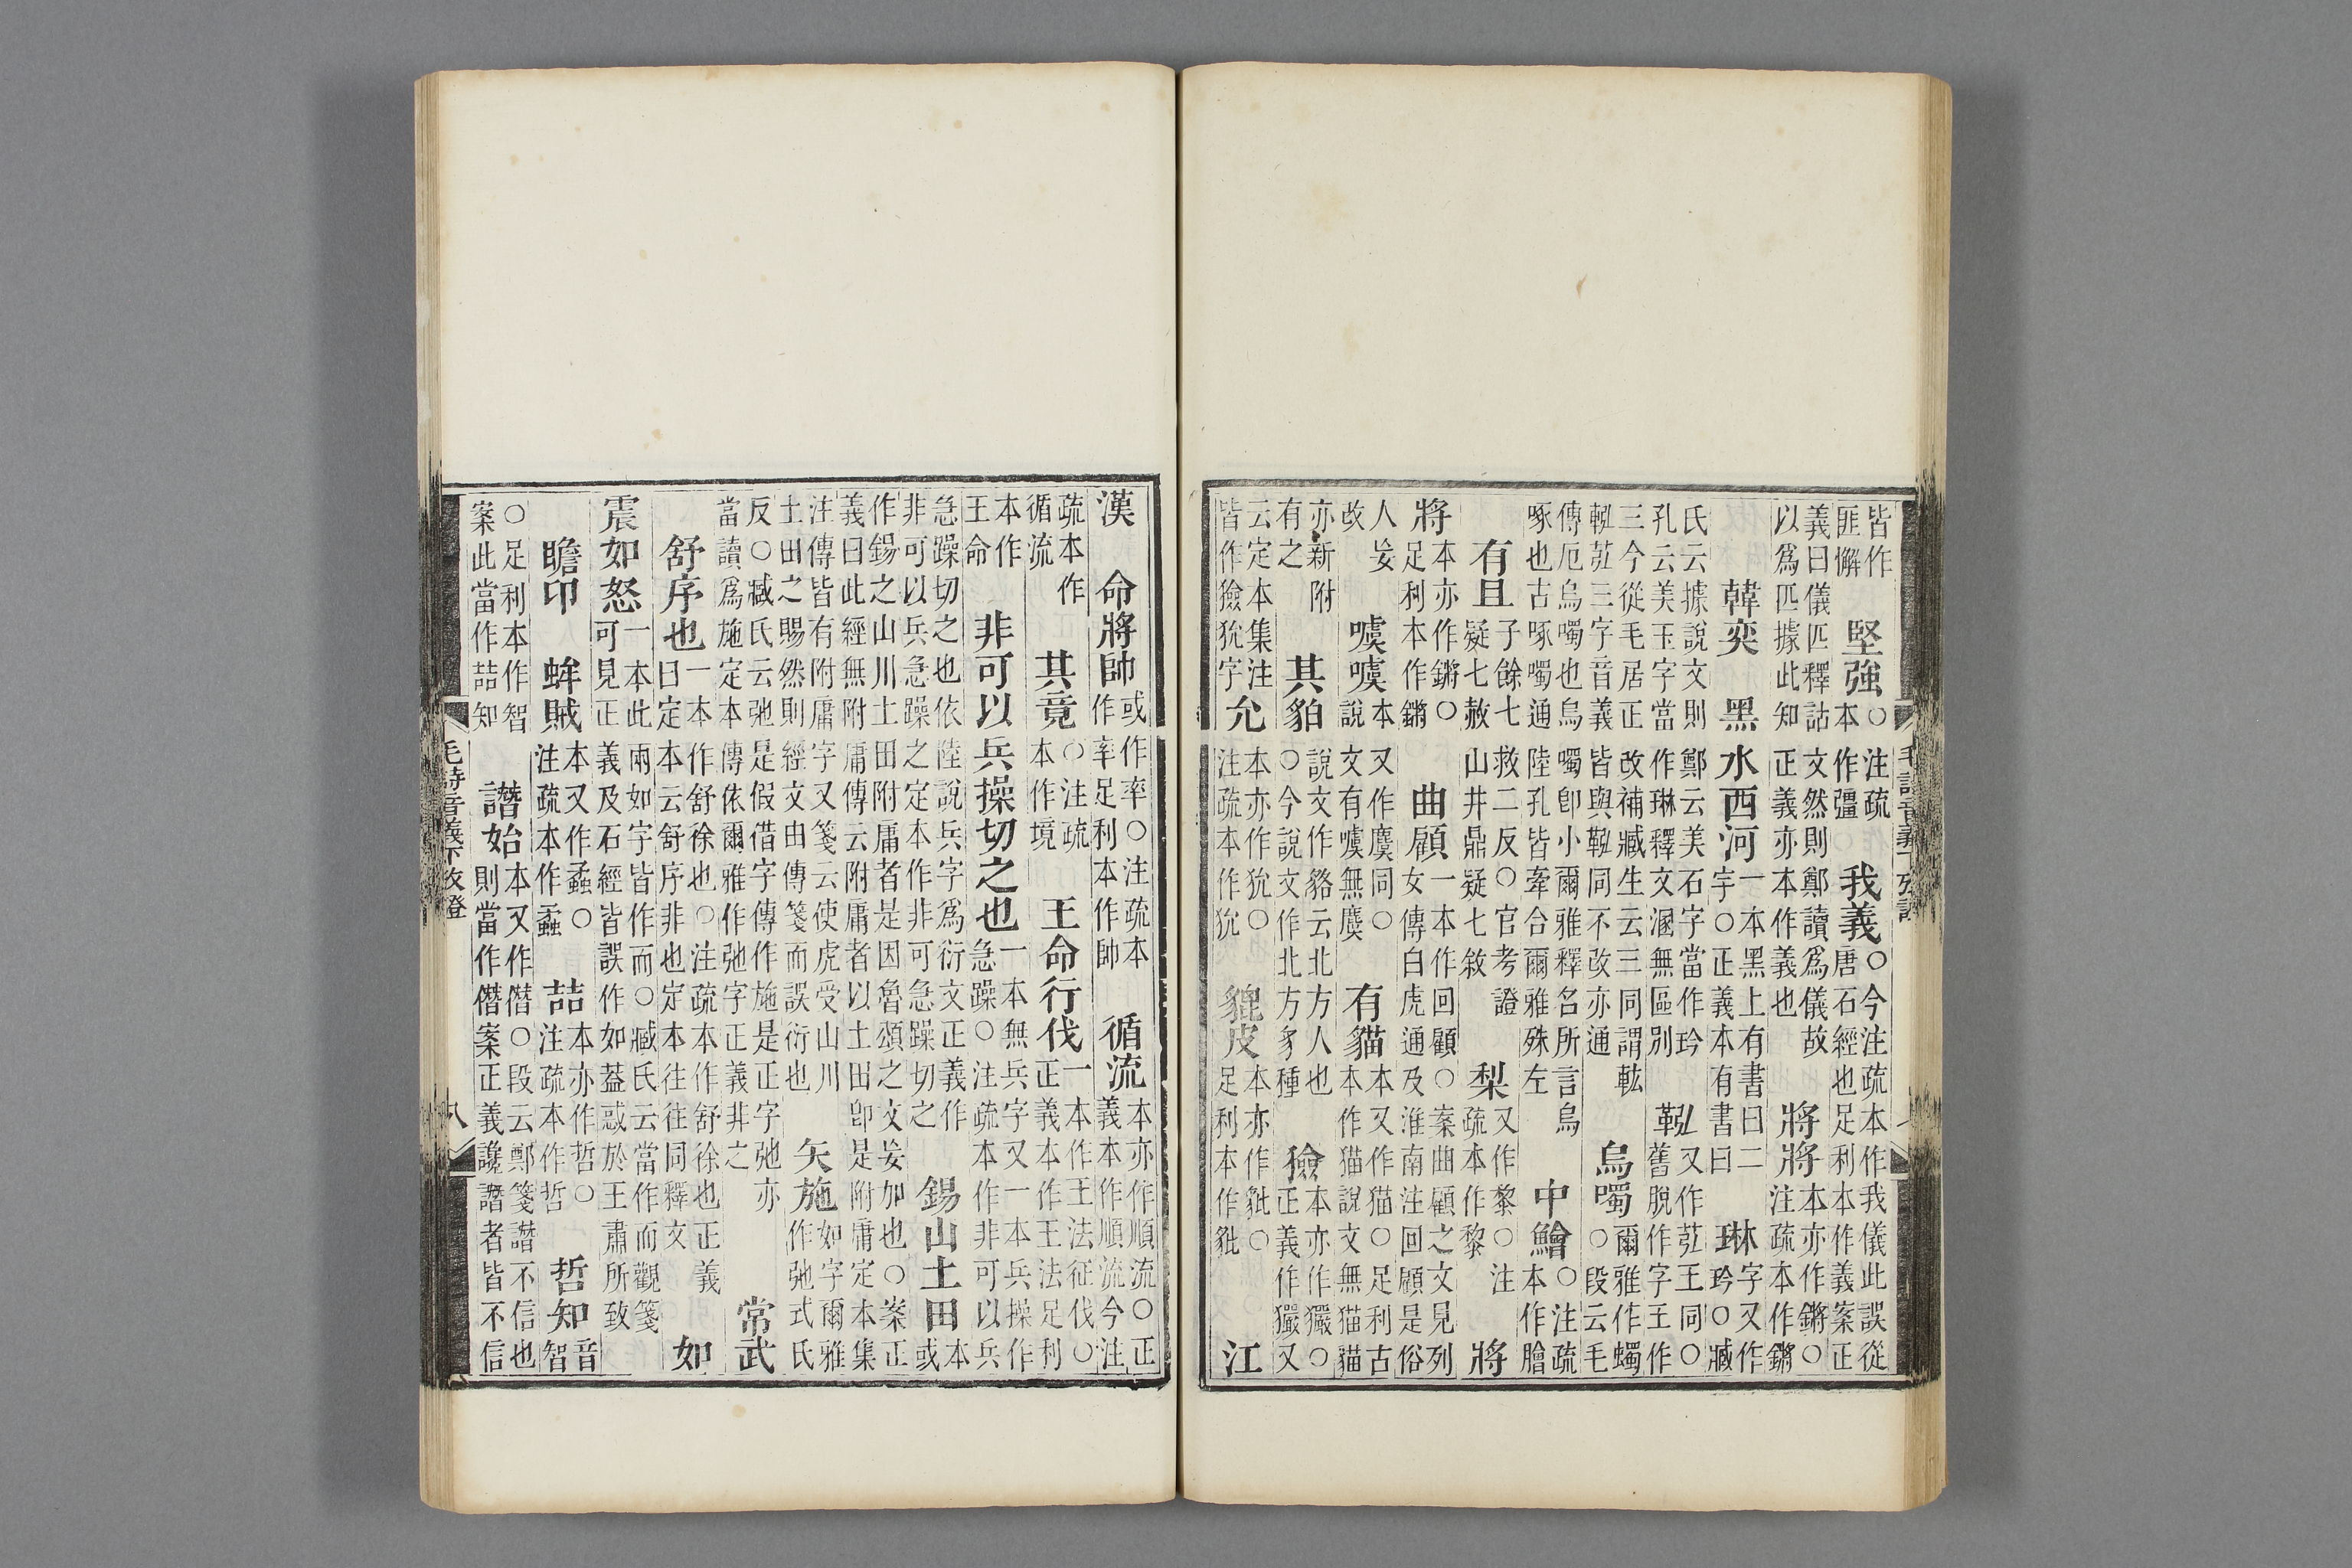 皆作匪懈　堅強○注疏本作彊　我義○今注疏本作我儀此誤從唐石經也足利本作義案正
義曰儀匹釋詁文然則鄭讀爲儀故以爲匹據此知正義亦本作義也　將將本亦作鏘○注疏本作鏘
韓奕　黑水西河一本黑上有書曰二字○正義本有書曰　琳字又作玪○臧
氏云據說文則鄭云美石字當作玪孔云美玉字當作琳釋文溷無區別　鞃又作苰王同○舊脫作字王作
三今從毛居正改補臧生云三同謂苰三字音義皆與鞃同不改亦通　烏噣爾雅作蠋○段云毛
傳厄烏噣也烏噣卽小爾雅釋名所言烏啄也古啄噣通陸孔皆牽合爾雅殊左　中鱠○注疏本作膾
有且子餘七救二反○官考證疑七赦山井鼎疑七敘　梨又作黎○注疏本作黎　將
將本亦作鏘○足利本作鏘　曲顧一本作回顧○案曲顧之文見列女傳白虎通及淮南注回顧是俗
人妄改　噳噳本又作麌同○說文有噳無麌　有貓本又作猫○足利古本作猫說文無猫貓
亦新附有之　其貊說文作貉云北方人也○今說文作北方豸種　獫本亦作玁○正義作玁又
云定本集注皆作獫狁字　允本亦作狁○注疏本作狁　貔皮本亦作豼○足利本作豼　江
漢　命將帥或作率○注疏本作率足利本作帥　循流本亦作順流○正義本作順流今注
疏本作循流　其竟○注疏本作境　王命行伐一本作王法征伐○正義本作王法足利
本作王命　非可以兵操切之也一本無兵字又一本兵操作急躁○注疏本作非可以兵
急躁切之也依陸說兵字爲衍文正義作非可以兵急躁之定本作非可急躁切之　錫山土田本或
作錫之山川土田附庸者是因魯頌之文妄加也○案正義曰此經無附庸傳云附庸者以土田卽是附庸定本集
注傳皆有附庸字又箋云使虎受山川土田之賜然則經文由傳箋而誤衍也　矢施如字爾雅作弛式氏
反○臧氏云弛是假借字傳作施是正字弛亦當讀爲施定本傳依爾雅作弛字正義非之　常武
舒序也一本作舒徐也○注疏本作舒徐也正義曰定本云舒序非也定本往往同釋文　如
震如怒一本此兩如字皆作而○臧氏云當作而觀箋可見正義及石經皆誤作如葢惑於王肅所致
瞻卬　蛑賊本又作蟊○注疏本作蟊　喆本亦作哲○注疏本作哲　哲知音智
○足利本作智案此當作喆知　譖始本又作僭○段云鄭箋譖不信也則當作僭案正義讒譖者皆不信
毛詩音義下攷證　八